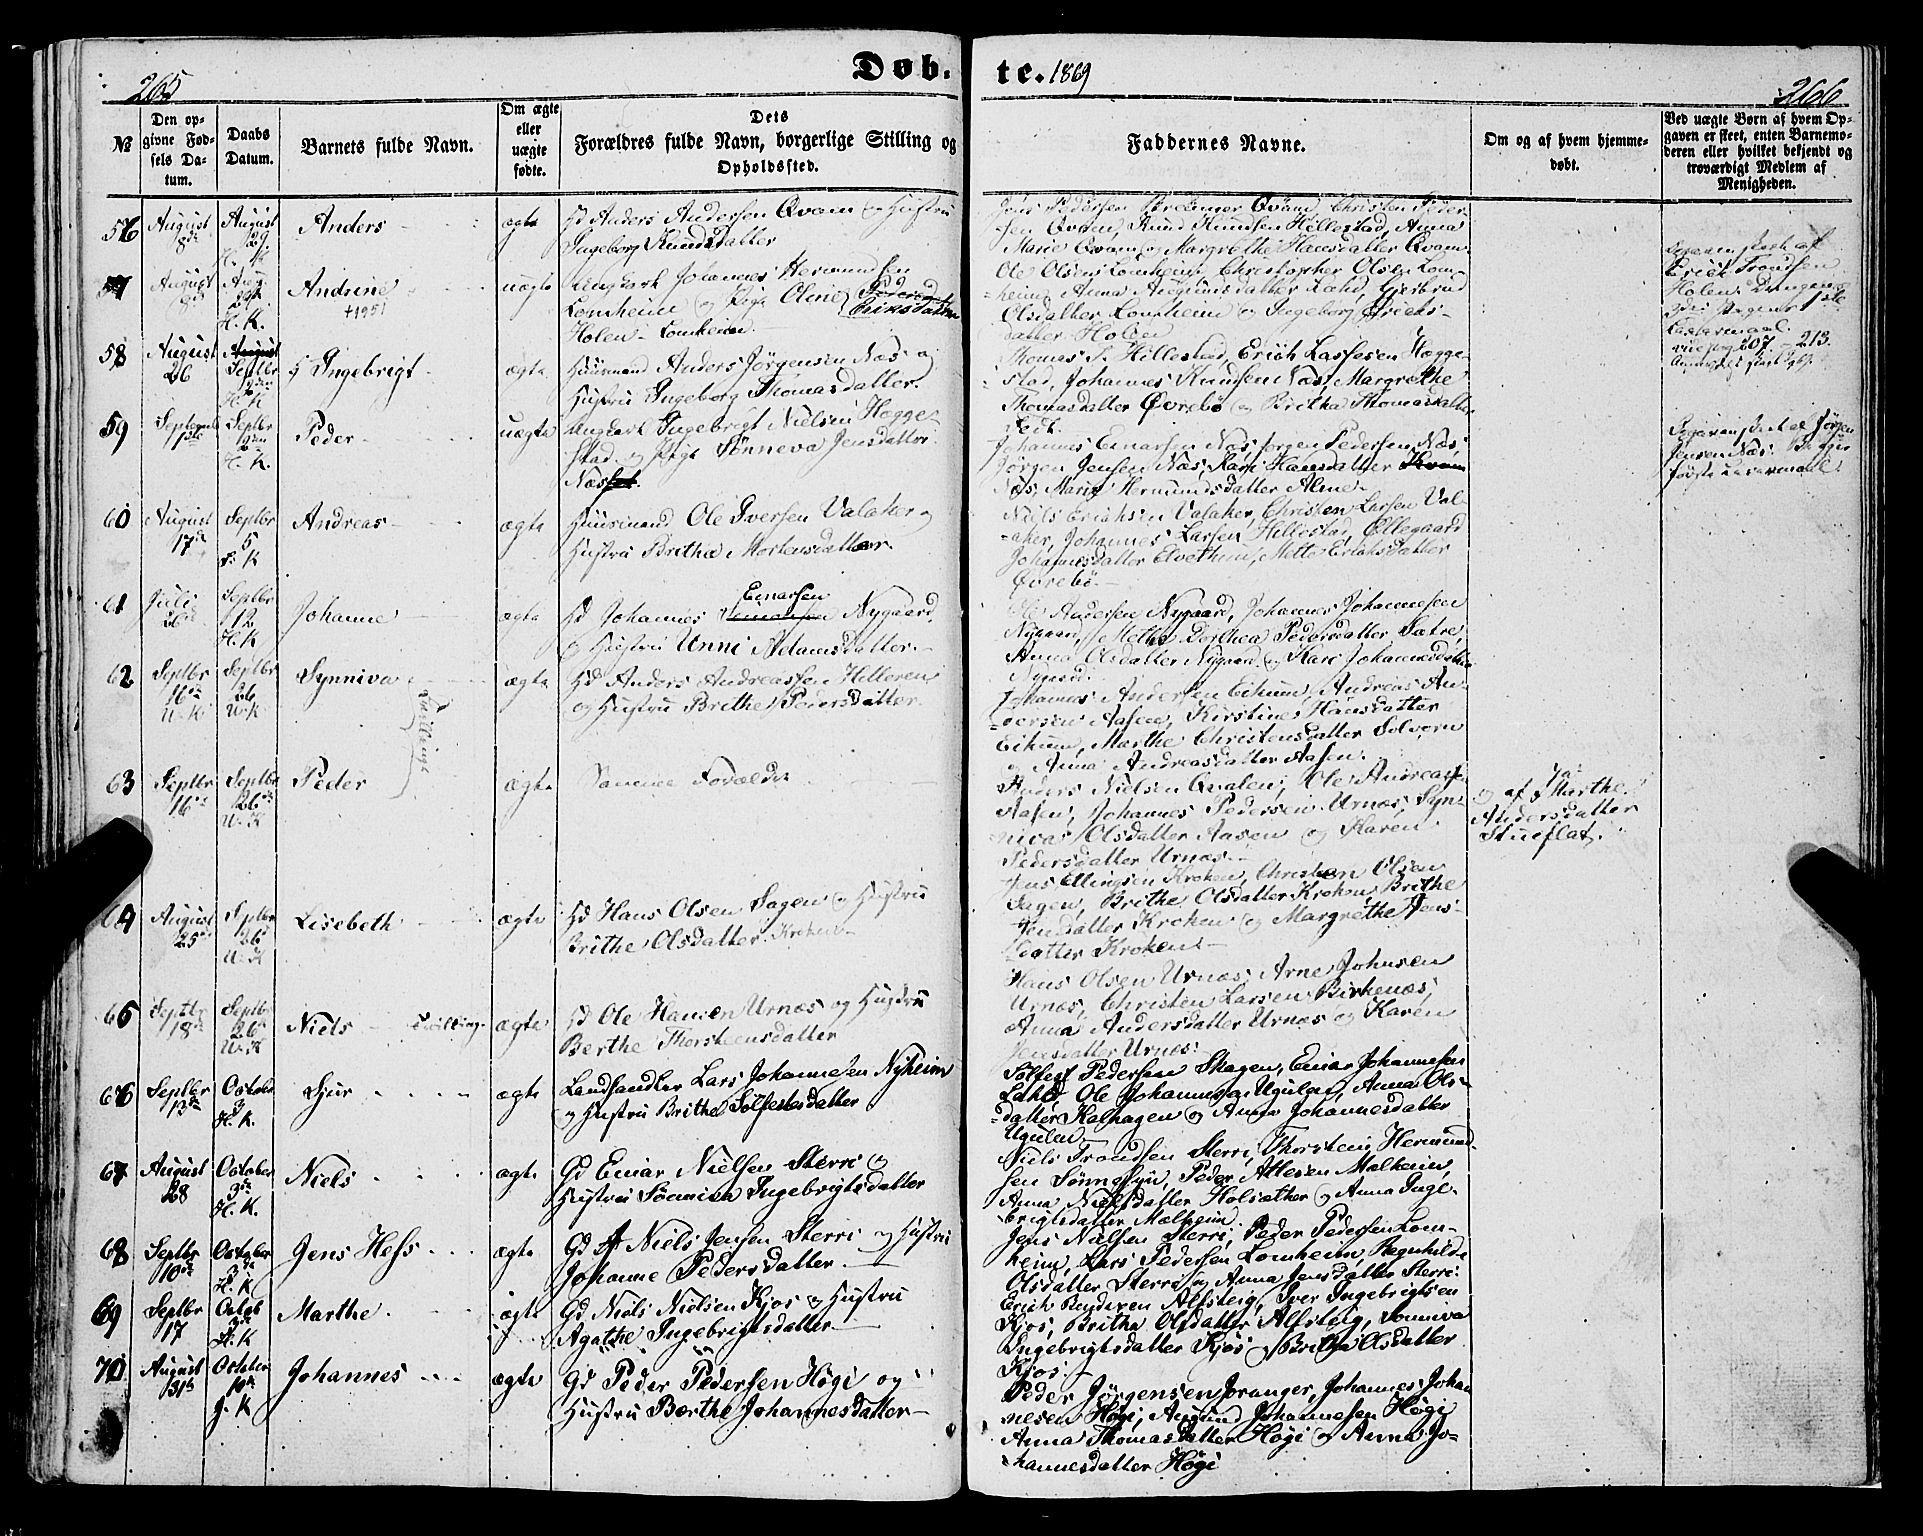 265
Døb.
te. 1869
266
№
Den op-
givne Fød-
sels Da-
tum.
Daabs
Datum.
Barnets fulde Navn.
Om ægte
eller
uægte
fødte.
Dets
Forældres fulde Navn, borgerlige Stilling og
Opholdssted.
Faddernes Navne.
Om og af hvem hjemme-
døbt.
Ved uægte Børn af hvem Op-
gaven er skeet, enten Barnemo-
deren eller hvilket bekjendt og
troværdigt Medlem af
Menigheden.
56
August
8de
August
29
H. K
Anders
ægte
Gd Anders Andersen Qvam og Hustru
Ingeborg Knudsdatter
Jens Pedersen Qvam, Christen Peder-
sen Qvam, Knud Knudsen Hillestad, Anna
Marie Qvam og Margrethe Hansdatter Qvam
57
August
Aug.
29
H. K.
Andrine
+1951
uægte
Ungkarl Johannes Hermundsen
Lomheim og Pige Oline Pedersd
Eriksdatter
Holen Lomheim
Ole Olsen Lomheim, Christopher Olsen Lom-
heim, Anna Augunsdatter Lahd, Gjertrud
Olsdatter Lomheim og Ingeborg Erichs-
datter Holen
Erick Trondsen
Holen
Leiermaal.
vide pag 207 - 213.
58
August
26
August
Septbr
12
H. K
Ingebrigt
ægte
Huusmand Anders Jörgensen Næs og
Hustru Ingeborg Thomasdatter.
Thomas S. Hillestad, Erich Lassesen Hegge-
stad, Johannes Knudsen Næs, Margrethe
Thomasdatter Övrebö og Britha Thomasdatter
59
Septemb
1ste
Septbr
12
H. K.
Peder
uægte
Ungkarl Ingebrigt Nielsen Hegge-
stad og Pige Sönneva Jensdatter
Næs
Johannes Einarsen Næs, Jörgen Pedersen Næs,
Jörgen Jensen Næs, Kari Hansdatter
Næs, Marie Hermundsdatter Alme
Jörgen
Jensen Næs. Begges
første Leiermaal.
60
August
17de
Septbr
5
F. K
Andreas
ægte
Huusmand Ole Iversen Valaker og
Hustru Brithe Mortensdatter.
Niels Erichsen Valaker, Christen Larsen Val-
aker, Johannes Larsen Hillestad, Ollegaard
Johannesdatter Elvethun, Mette Erichsdatter
Övrebö.
61
Juli
26de
Septbr
12
H. K
Johanne
ægte
Einarsen
Gd Johannes Nygaard
og Hustru Unni Adamsdatter.
Ole Andersen Nygaard, Johannes Johannesen
Nygaard, Methe Dorthea Pedersdatter Sætre,
Anna Olsdatter Nygaard og Kari Johannesdatter
Nygaard
62
Septbr
16de
U. K
Septbr
26
U. K
Synniva
Tvillinge
ægte
Gd Anders Andreassen Helleren
og Hustru Brithe Pedersdatter
Johannes Andersen Eikum, Andreas An-
dersen Aasen, Kirstine Hansdatter
Eikum, Marthe Christensdatter Solvorn
og Anna Andreasdatter Aasen.
63
Septbr
16de
Septbr
26de
U. K
Peder
ægte
Samme Forældre
Anders Nielsen Qvalen, Ole Andreasen
Aasen, Johannes Pedersen Urnæs, Syn-
niva Olsdatter Aasen og Karen
Pedersdatter Urnæs
Ja
og af Marthe
Andersdatter
Stueflat.
64
August
25de
Septbr
26
U. K
Lisebeth
ægte
Gd Hans Olsen Sagen og Hustru
Brithe Olsdatter Kroken
Jens Ellingsen Kroken, Christen Olsen
Sagen, Brithe Olsdatter Kroken, Brithe
Jensdatter Kroken og Margrethe Jens-
datter Kroken
65
Septbr
18de
Septbr
26
U. K
Niels
Tvilling
ægte
Gd Ole Hansen Urnæs og Hustru
Berthe Thorsteensdatter
Hans Olsen Urnæs, Arne Johnsen
Urnæs, Christen Larsen Birkenæs,
Anna Andersdatter Urnæs og Karen
Jensdatter Urnæs
66
Septbr
13de
October
3
H. K.
Sjur
ægte
Landhandler Lars Johannesen Nyheim
og Hustru Brithe Solfestsdatter
Solfest Pedersen Skagen, Einar Johannesen
Lahd, Ole Johannesen Ugulen, Anna Ols-
datter Kalhagen og Anna Johannesdatter
Ugulen
67
August
28
October
3de
H. K.
Niels
ægte
Gd Einar Nielsen Sterri og
Hustru Sönniva Ingebrigtsdatter
Niels Trondsen Sterri, Thorstein Hermund-
sen Sönnesyn, Peder Atlesen Molheim,
Anna Nielsdatter Holsæther og Anna Inge-
brigtsdatter Mølheim
68
Septbr
10de
October
3de
H. K
Jens Hess
ægte
Gd Niels Jensen Sterri og Hustru
Johanne Pedersdatter
Jens Nielsen Sterri, Peder Pedersen Lom-
heim, Lars Pedersen Lomheim, Ragnhilde
Olsdatter Sterri og Anna Jensdatter Sterri
69
Septbr
17
Octob
3de
H. K
Marthe
ægte
Gd Niels Nielsen Kjos og Hustru
Agathe Ingebrigtsdatter
Erich Alfsteig, Iver Ingebrigtsen
Kjos, Britha Olsdatter Alfsteig, Sönniva
Ingebrigtsdatter Kjos og Britha Olsdatter
Kjos
70
August
31te
October
10de
J. K
Johannes
ægte
Gd Peder Pedersen Högi og
Hustru Berthe Johannesdatter
Peder Jörgensen Joranger, Johannes Johan
nesen Högi, Amund Johannesen Högi
Anna Thomasdatter Högi og Anna Jo-
hannesdatter Högi